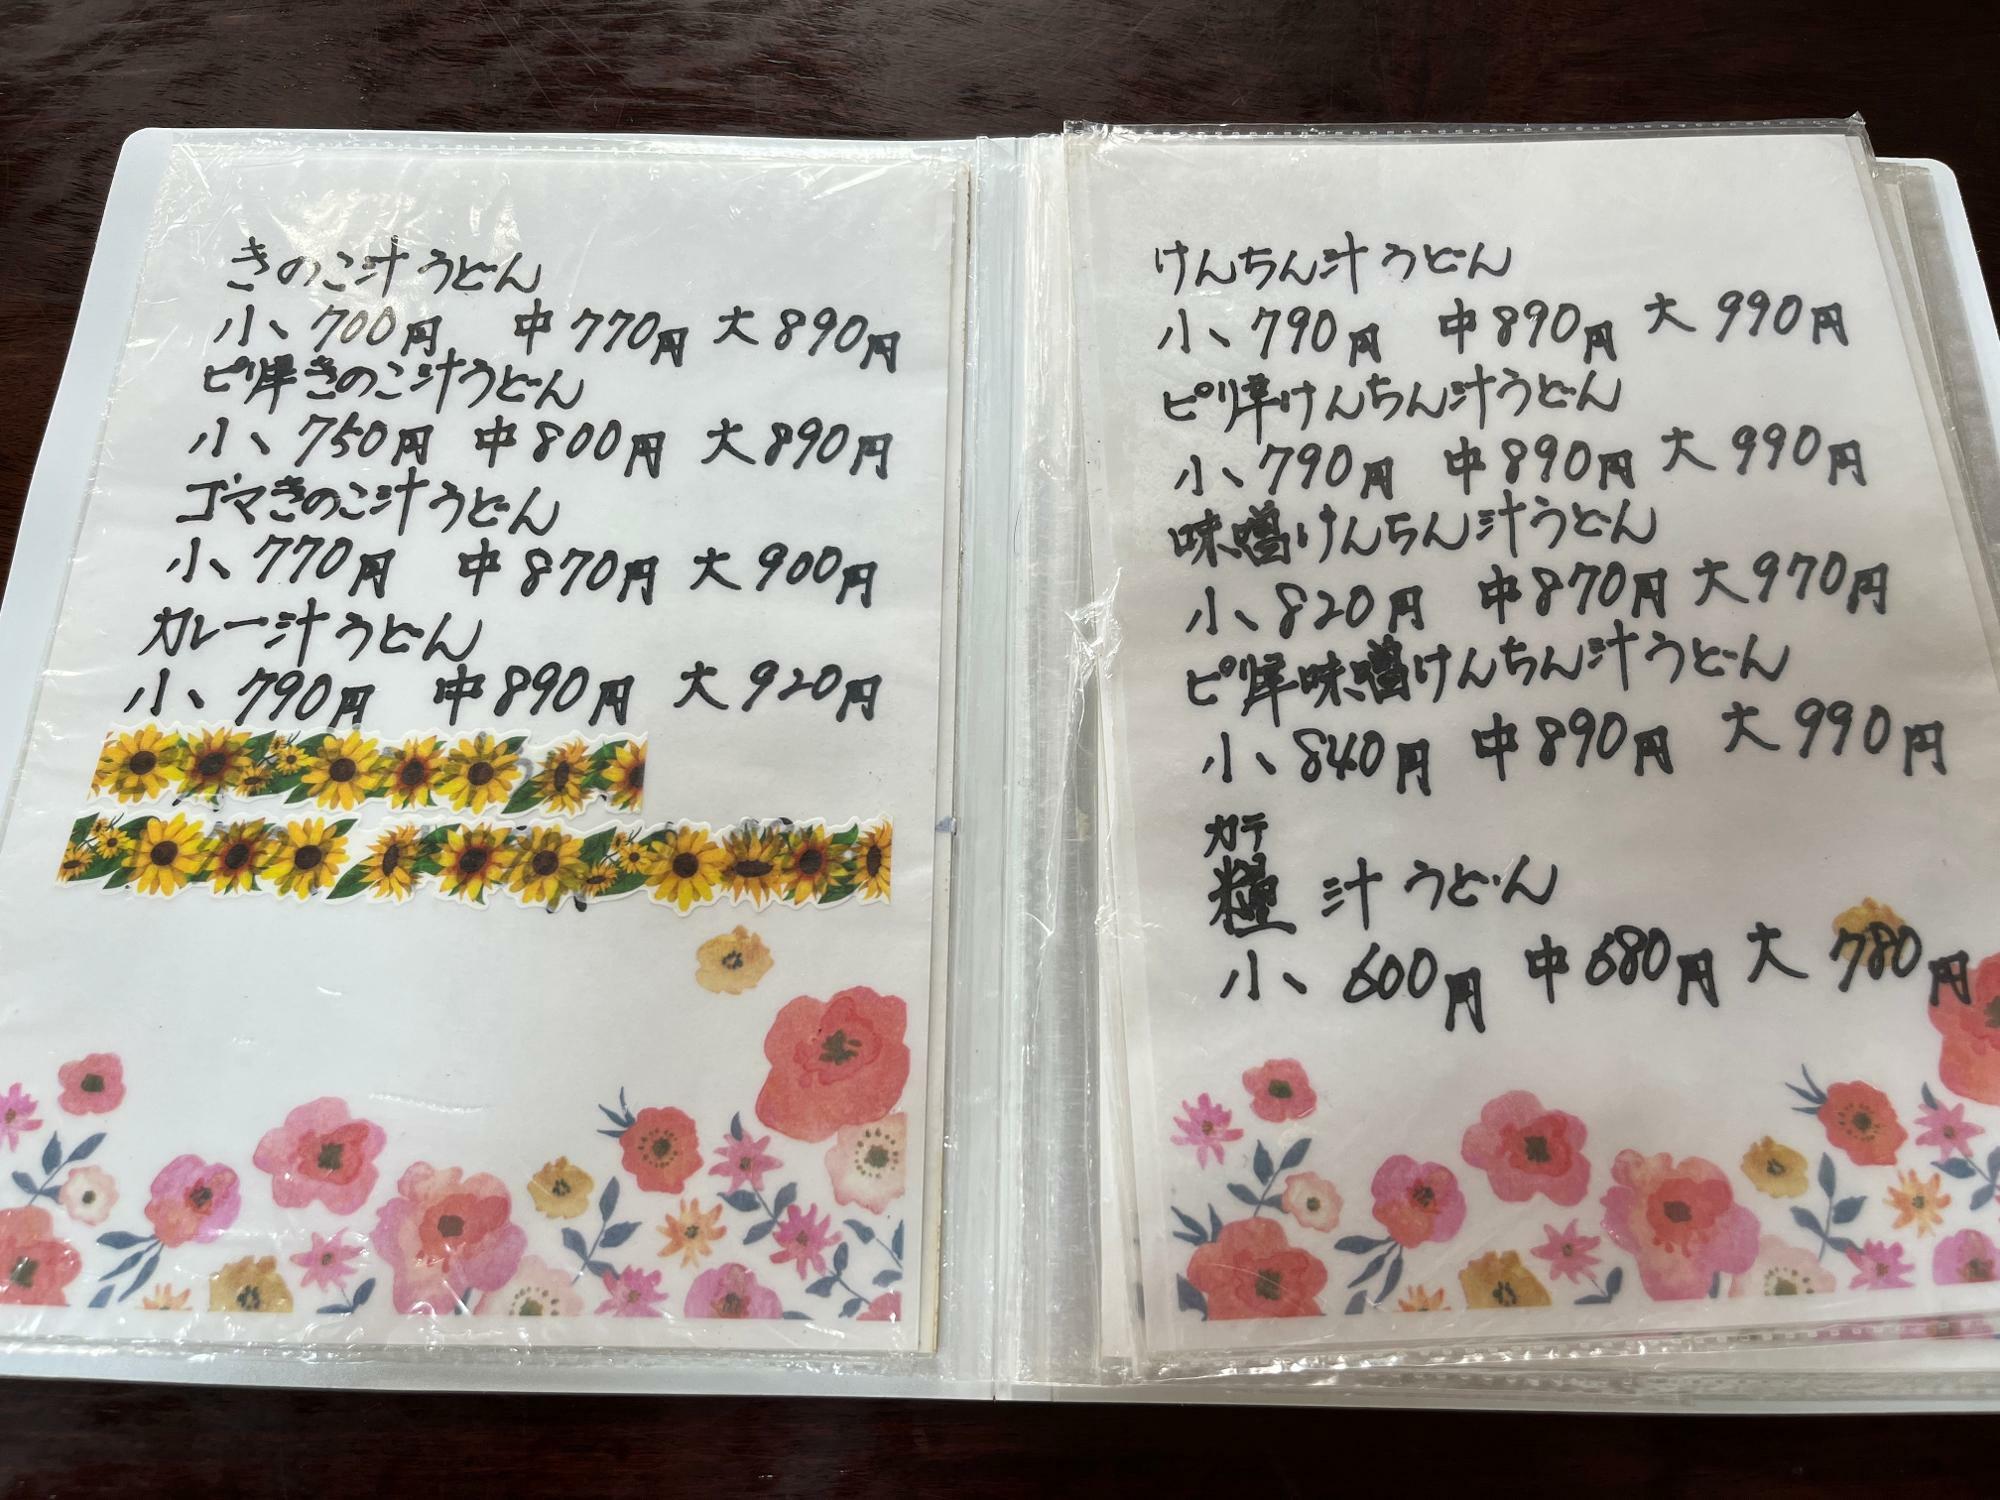 きのこ汁うどん
小 700円 中 770円 大 890円
ピリ辛きのこ汁うどん
小 750円 中 800円 大 890円
ゴマきのこ汁うどん
小 770円 中 870円 大 900円
カレー汁うどん
小 790円 中 890円 大 920円
けんちん汁うどん
小 790円 中 890円 大 990円
ピリ辛けんちん汁うどん
小 790円 中 890円 大 990円
味噌けんちん汁うどん
小 820円 中 870円 大 970円
ピリ辛味噌けんちん汁うどん
小 840円 中 890円 大 990円
カテ
糧 汁うどん
小 600円 中 680円 大 780円